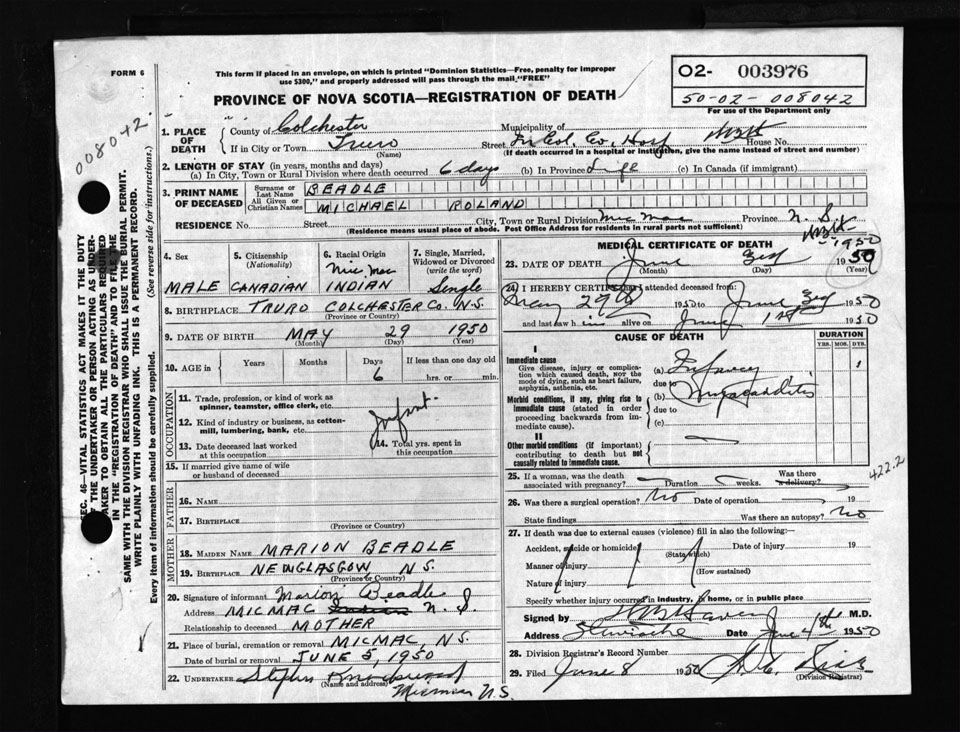 FORM 6
This form if placed in an envelope, on which is printed "Dominion Statistics—Free, penalty for improper
use $300," and properly addressed will pass through the mail, "FREE"
PROVINCE OF NOVA SCOTIA—REGISTRATION OF DEATH
02- 003976
50-02-008042
For use of the Department only
008042
1. PLACE OF DEATH
County of Colchester
Municipality of
If in City or Town Truro
(Name)
Street Col. Co. Hosp House No.
(If death occurred in a hospital or institution, give the name instead of street and number)
2. LENGTH OF STAY (in years, months and days)
(a) In City, Town or Rural Division where death occurred 6 days (b) In Province Life (c) In Canada (if immigrant)
3. PRINT NAME OF DECEASED
Surname or Last Name BEADLE
All Given or Christian Names MICHAEL ROLAND
RESIDENCE No. Street City, Town or Rural Division Mic Mac Province N.S.
(Residence means usual place of abode. Post Office Address for residents in rural parts not sufficient)
4. Sex MALE
5. Citizenship (Nationality) CANADIAN
6. Racial Origin Mic Mac INDIAN
7. Single, Married, Widowed or Divorced (write the word) Single
8. BIRTHPLACE TRURO COLCHESTER Co. N.S.
(Province or Country)
9. DATE OF BIRTH MAY 29 1950
(Month) (Day) (Year)
10. AGE in Years Months Days 6 If less than one day old hrs. or min.
OCCUPATION
11. Trade, profession, or kind of work as spinner, teamster, office clerk, etc.
12. Kind of industry or business, as cotton-mill, lumbering, bank, etc. Infant
13. Date deceased last worked at this occupation
14. Total yrs. spent in this occupation
15. If married give name of wife or husband of deceased
FATHER
16. NAME
17. BIRTHPLACE
(Province or Country)
MOTHER
18. MAIDEN NAME MARION BEADLE
19. BIRTHPLACE NEWGLASGOW, N.S.
(Province or Country)
20. Signature of informant Marion Beadle
Address MICMAC N.S.
Relationship to deceased MOTHER
21. Place of burial, cremation or removal MICMAC, N.S.
Date of burial or removal JUNE 5, 1950
22. UNDERTAKER Stephen
(Name and address)
Micmac N.S.
MEDICAL CERTIFICATE OF DEATH
1950
23. DATE OF DEATH June 3rd 1950
(Month) (Day) (Year)
24. I HEREBY CERTIFY that I attended deceased from:
May 29th 1950 to June 3rd 1950
and last saw him alive on June 1st 1950
CAUSE OF DEATH
DURATION
YRS. MOS. DYS.
I
Immediate cause
Give disease, injury or complication which caused death, not the mode of dying, such as heart failure, asphyxia, asthenia, etc.
(a) Infancy
due to
Morbid conditions, if any, giving rise to immediate cause (stated in order proceeding backwards from immediate cause).
(b) Myocarditis
due to
(c)
II
Other morbid conditions (if important) contributing to death but not causally related to immediate cause.
422.2
25. If a woman, was the death associated with pregnancy? Duration weeks. Was there a delivery?
26. Was there a surgical operation? No Date of operation 19
State findings Was there an autopsy? No
27. If death was due to external causes (violence) fill in also the following:—
Accident, suicide or homicide (State which) Date of injury 19
Manner of injury (How sustained)
Nature of injury
Specify whether injury occurred in industry, in home, or in public place
Signed by M.D.
Address Stewiacke Date June 4th 1950
28. Division Registrar's Record Number
29. Filed June 8 1950
(Division Registrar)
SEC. 46—VITAL STATISTICS ACT MAKES IT THE DUTY
OF THE UNDERTAKER OR PERSON ACTING AS UNDER-
TAKER TO OBTAIN ALL THE PARTICULARS REQUIRED
IN THE "REGISTRATION OF DEATH" AND TO FILE THE
SAME WITH THE DIVISION REGISTRAR WHO SHALL ISSUE THE BURIAL PERMIT.
WRITE PLAINLY WITH UNFADING INK. THIS IS A PERMANENT RECORD.
Every item of information should be carefully supplied. (See reverse side for instructions.)